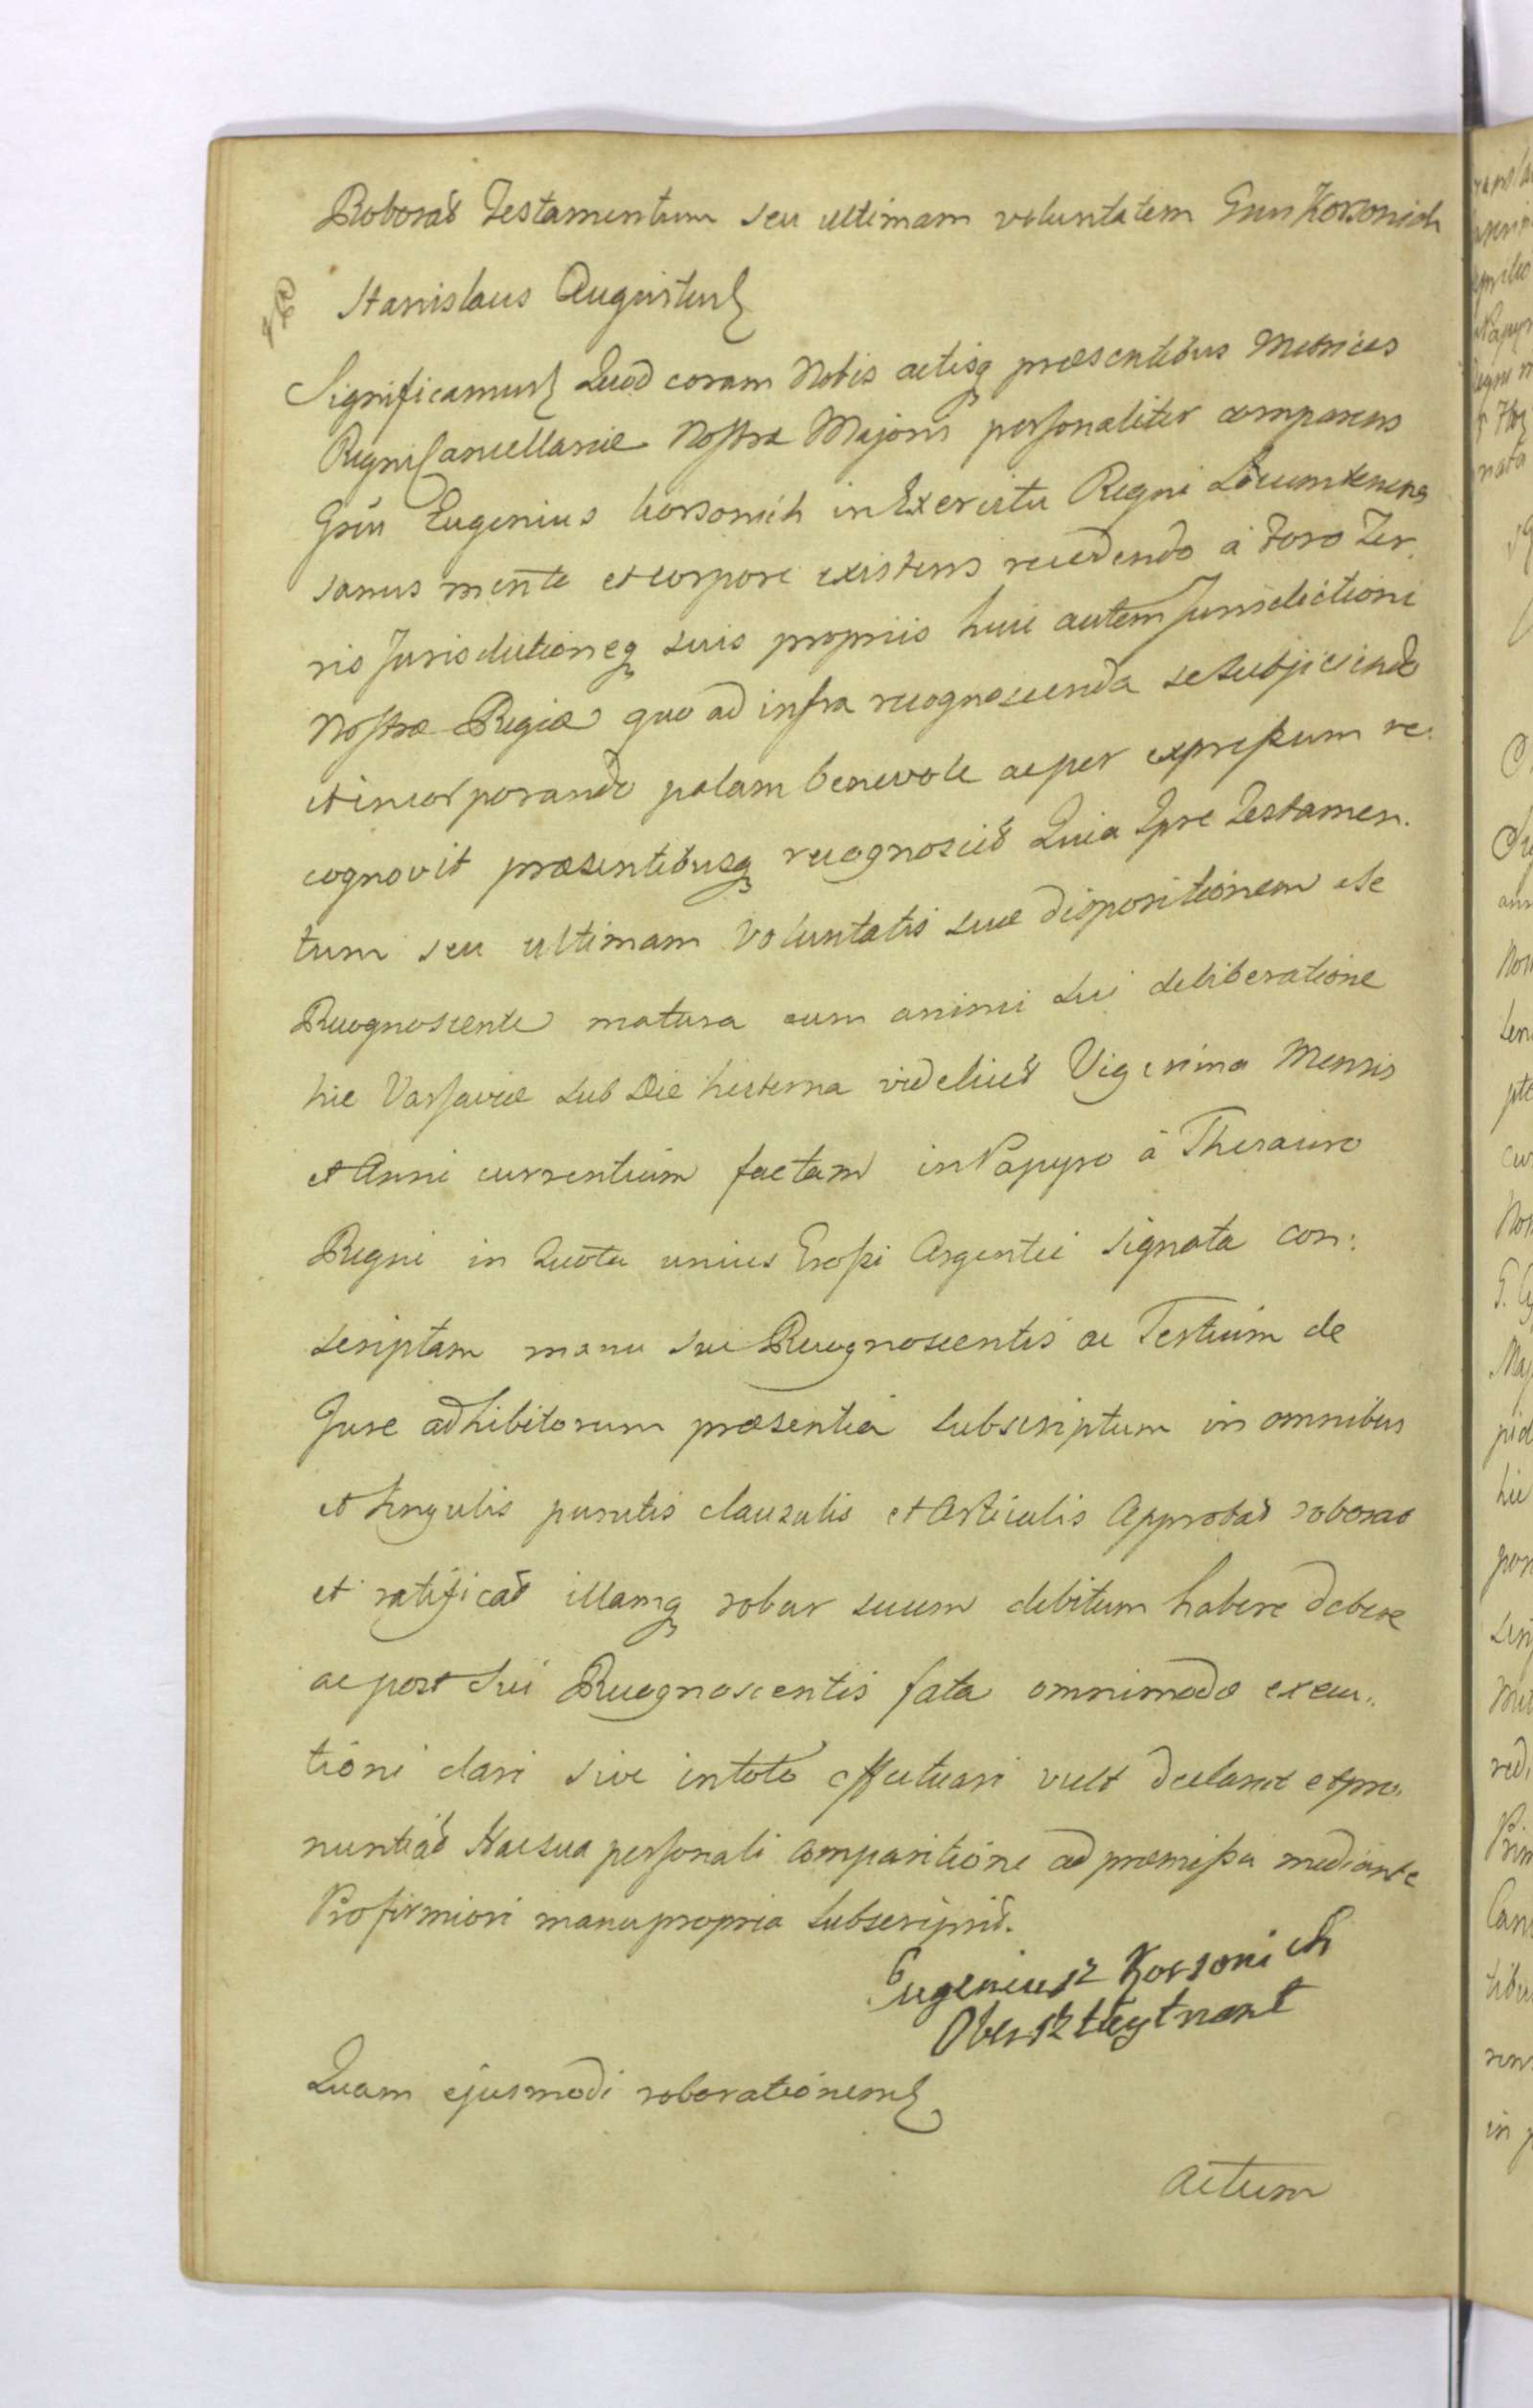 Roborat Testamentum seu ultimam voluntatem Gnus Korsonich
Stanislaus Augustus
Significamus Quod coram Nobis actisq praesentibus Metrices
Regni Cancellariae Nostrae Majoris personaliter comparens
Gnus Eugenius Corsonich in Exercitu Regni Locumtenens
sanus mente et corpore existens recedendo à Foro Ter
ris Jurisdictioneq suis propriis huic autem Jurisdictioni
Nostrae Regiae quo ad infra recognoscenda se subjiciendo
et incorporando palam benevole ac per expressum re:
cognovit praesentibusq recognoscit Quia Ipse Testamen.
tum seu ultimam Voluntatis suae dispositionem a se
Recognoscente matura cum animi sui deliberatione
hic Varsaviae sub die hesterna videlicet Vigesima Mensis
et Anni currentium factam in Papyro à Thesauro
Regni in Quota unius Grossi Argentei signata con:
scriptam manu sui Recognoscentis ac Testium de
Jure adhibitorum praesentia subscriptum in omnibus
et singulis punctis clausulis et Articulis Approbat roborat
et ratificat illamq robur suum debitum habere debere
ac post sui Recognoscentis fata omnimodae execu..
tioni dari sive in toto effectuari vult declarat et pro.
nuntiat Hac sua personali comparitione ad praemissa mediante
Pro firmiori manu propria subscripsit.
Eugeniusz Korsonich
Obersztleytnant
Quam ejusmodi roborationem
Actum